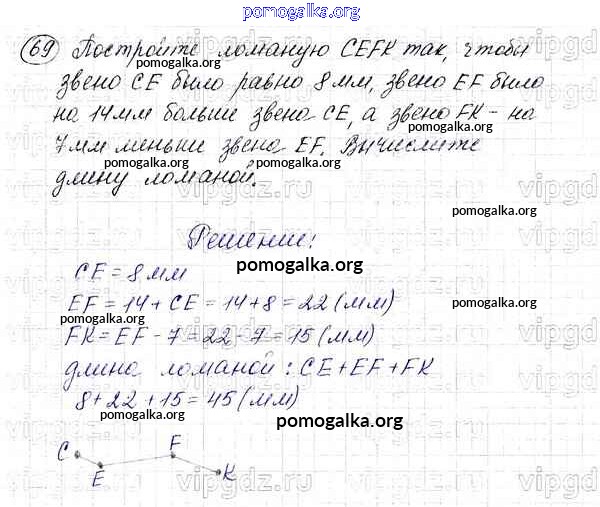 pomogalka.org
69 Постройте ломаную CEFK так, чтобы
pomogalka.org
звено CE было равно 8 мм, звено EF было
на 14 мм больше звена CE, а звено FK – на
pomogalka.org
7 мм меньше звена EF. Вычислите
pomogalka.org pomogalka.org
длину ломаной.
vipgdz.ru
pomogalka.org
Решение:
pomogalka.org
CE = 8 мм
EF = 14 + CE = 14 + 8 = 22 (мм)
pomogalka.org pomogalka.org
FK = EF - 7 = 22 - 7 = 15 (мм)
длина ломаной: CE + EF + FK
8 + 22 + 15 = 45 (мм)
pomogalka.org
C E F K
vipgdz.ru